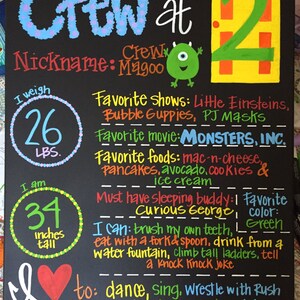 Crew at 2
Nickname: Crew Magoo
I weigh
26
LBS.
Favorite shows: Little Einsteins,
Bubble Guppies, PJ Masks
Favorite movie: MONSTERS, INC.
Favorite foods: mac-n-cheese,
pancakes, avocado, cookies &
ice cream
I am
34
inches
tall
Must have sleeping buddy:
Curious George,
Favorite
color:
Green
I can: brush my own teeth,
eat with a fork & spoon, drink from a
water fountain, climb tall ladders, tell
a knock knock joke
I to: dance, sing, wrestle with Rush